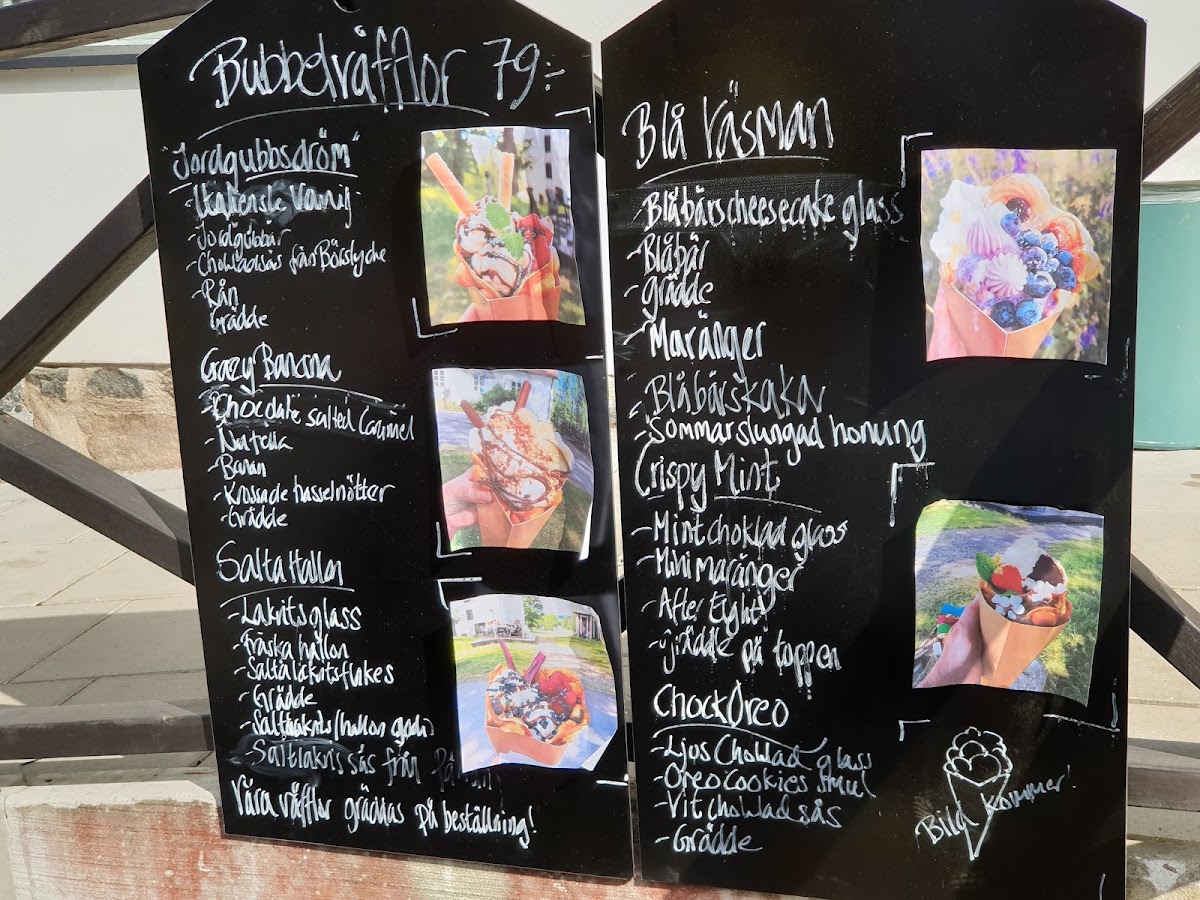 Bubbelvåfflor 79:-
"Jordgubbsdröm"
- Italiensk Vanilj
- Jordgubbar
- Chokladsås från Börslycke
- Rån
Grädde
Crazy Banana
- Chocolate salted Caramel
- Nutella
- Banan
- Krossade hasselnötter
- Grädde
Salta Hallon
- Lakritsglass
- Färska hallon
- Salta lakritsflakes
- Grädde
- Saltlakrits/hallon godis
Saltlakrits sås från
Våra våfflor gräddas på beställning!
Blå Väsman
- Blåbärscheesecake glass
- Blåbär
- grädde
- Maränger
- Blåbärskaka
- Sommarslungad honung
Crispy Mint
- Mintchoklad glass
- Mini maränger
- After Eight!
- grädde på toppen
ChockOreo
- Ljus Choklad glass
- Oreo cookies smul
- Vit chokladsås
- Grädde
Bild kommer!